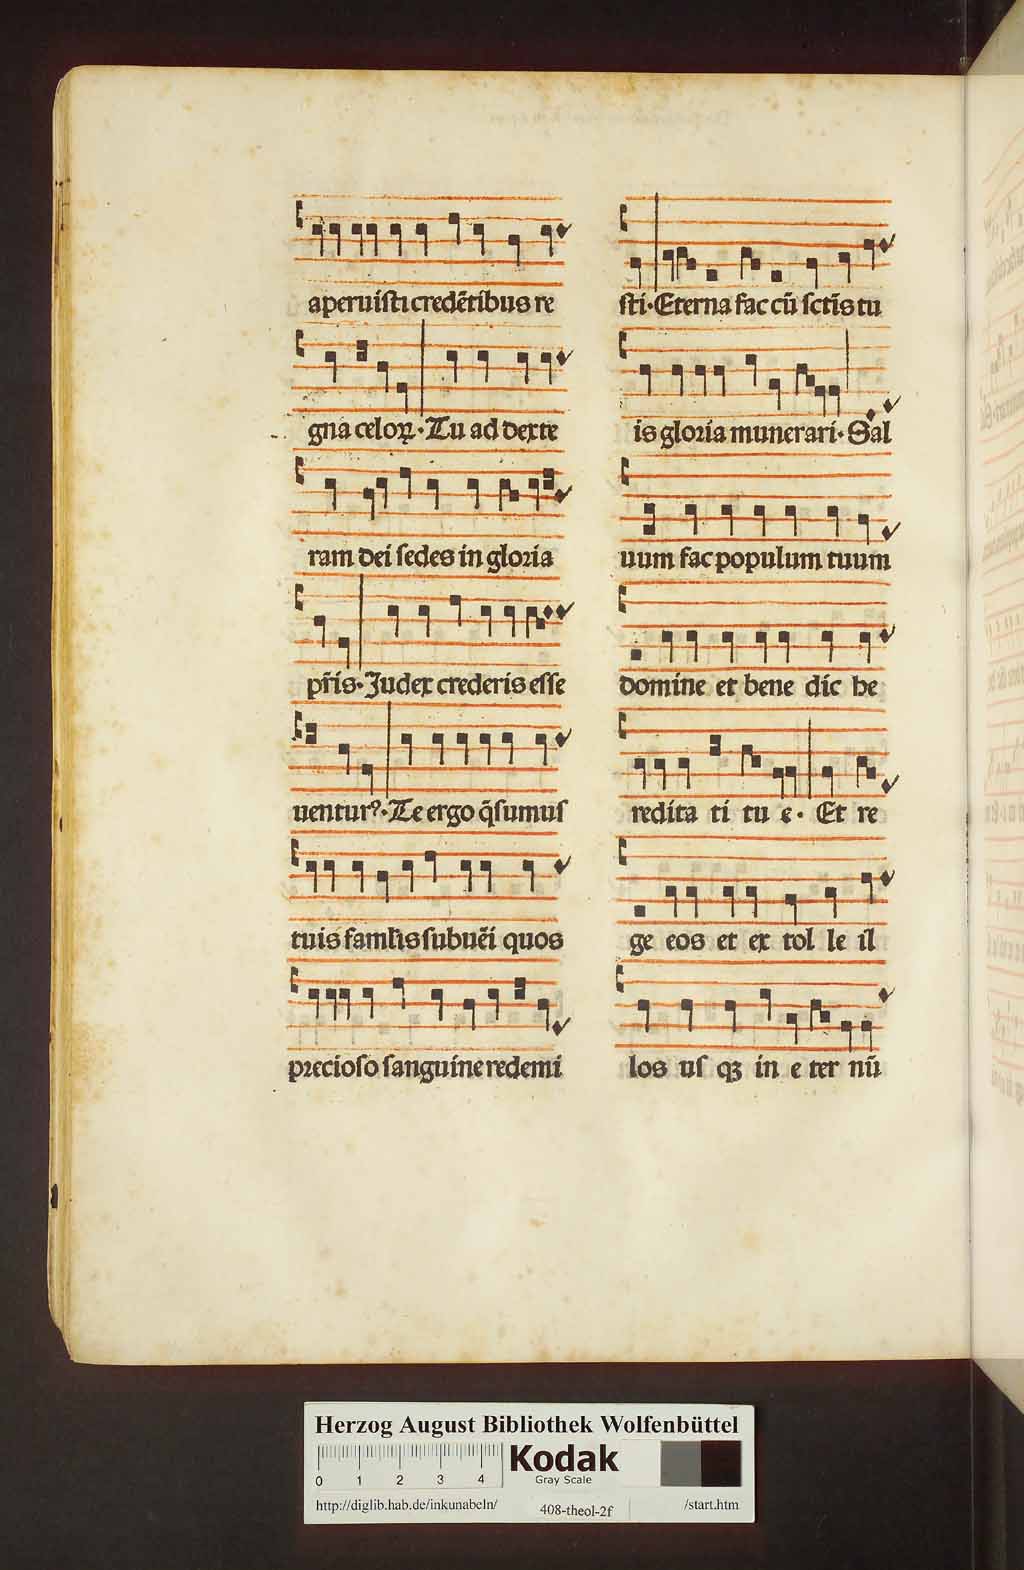 aperuisti credētibus re
gna celoꝝ · Tu ad dexte
ram dei sedes in gloria
pr̄is · Judex crederis esse
uenturꝰ · Te ergo q̄sumus
tuis famĺis subuēi quos
precioso sanguine redemi
sti · Eterna fac cū sctīs tu
is gloria munerari · Sal
uum fac populum tuum
domine et bene dic he
redita ti tu e · Et re
ge eos et ex tol le il
los us qꝫ in e ter nū
Herzog August Bibliothek Wolfenbüttel
0 1 2 3 4
Kodak
Gray Scale
http://diglib.hab.de/inkunabeln/ 408-theol-2f /start.htm